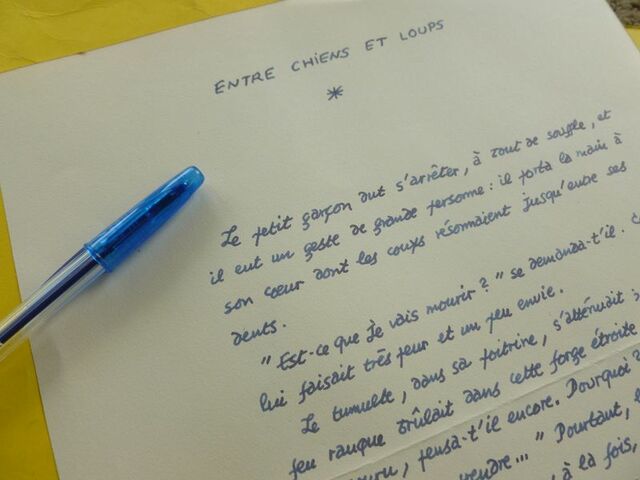 ENTRE CHIENS ET LOUPS
*
Le petit garçon dut s'arrêter, à bout de souffle, et
il eut un geste de grande personne : il porta la main à
son cœur dont les coups résonnaient jusqu'entre ses
dents.
"Est-ce que je vais mourir ?" se demanda-t'il.
lui faisait très peur et un peu envie.
Le tumulte, dans sa poitrine, s'atténuait
feu rauque brûlait dans cette forge étroite
pensa-t'il encore. Pourquoi
..." Pourtant,
à la fois,